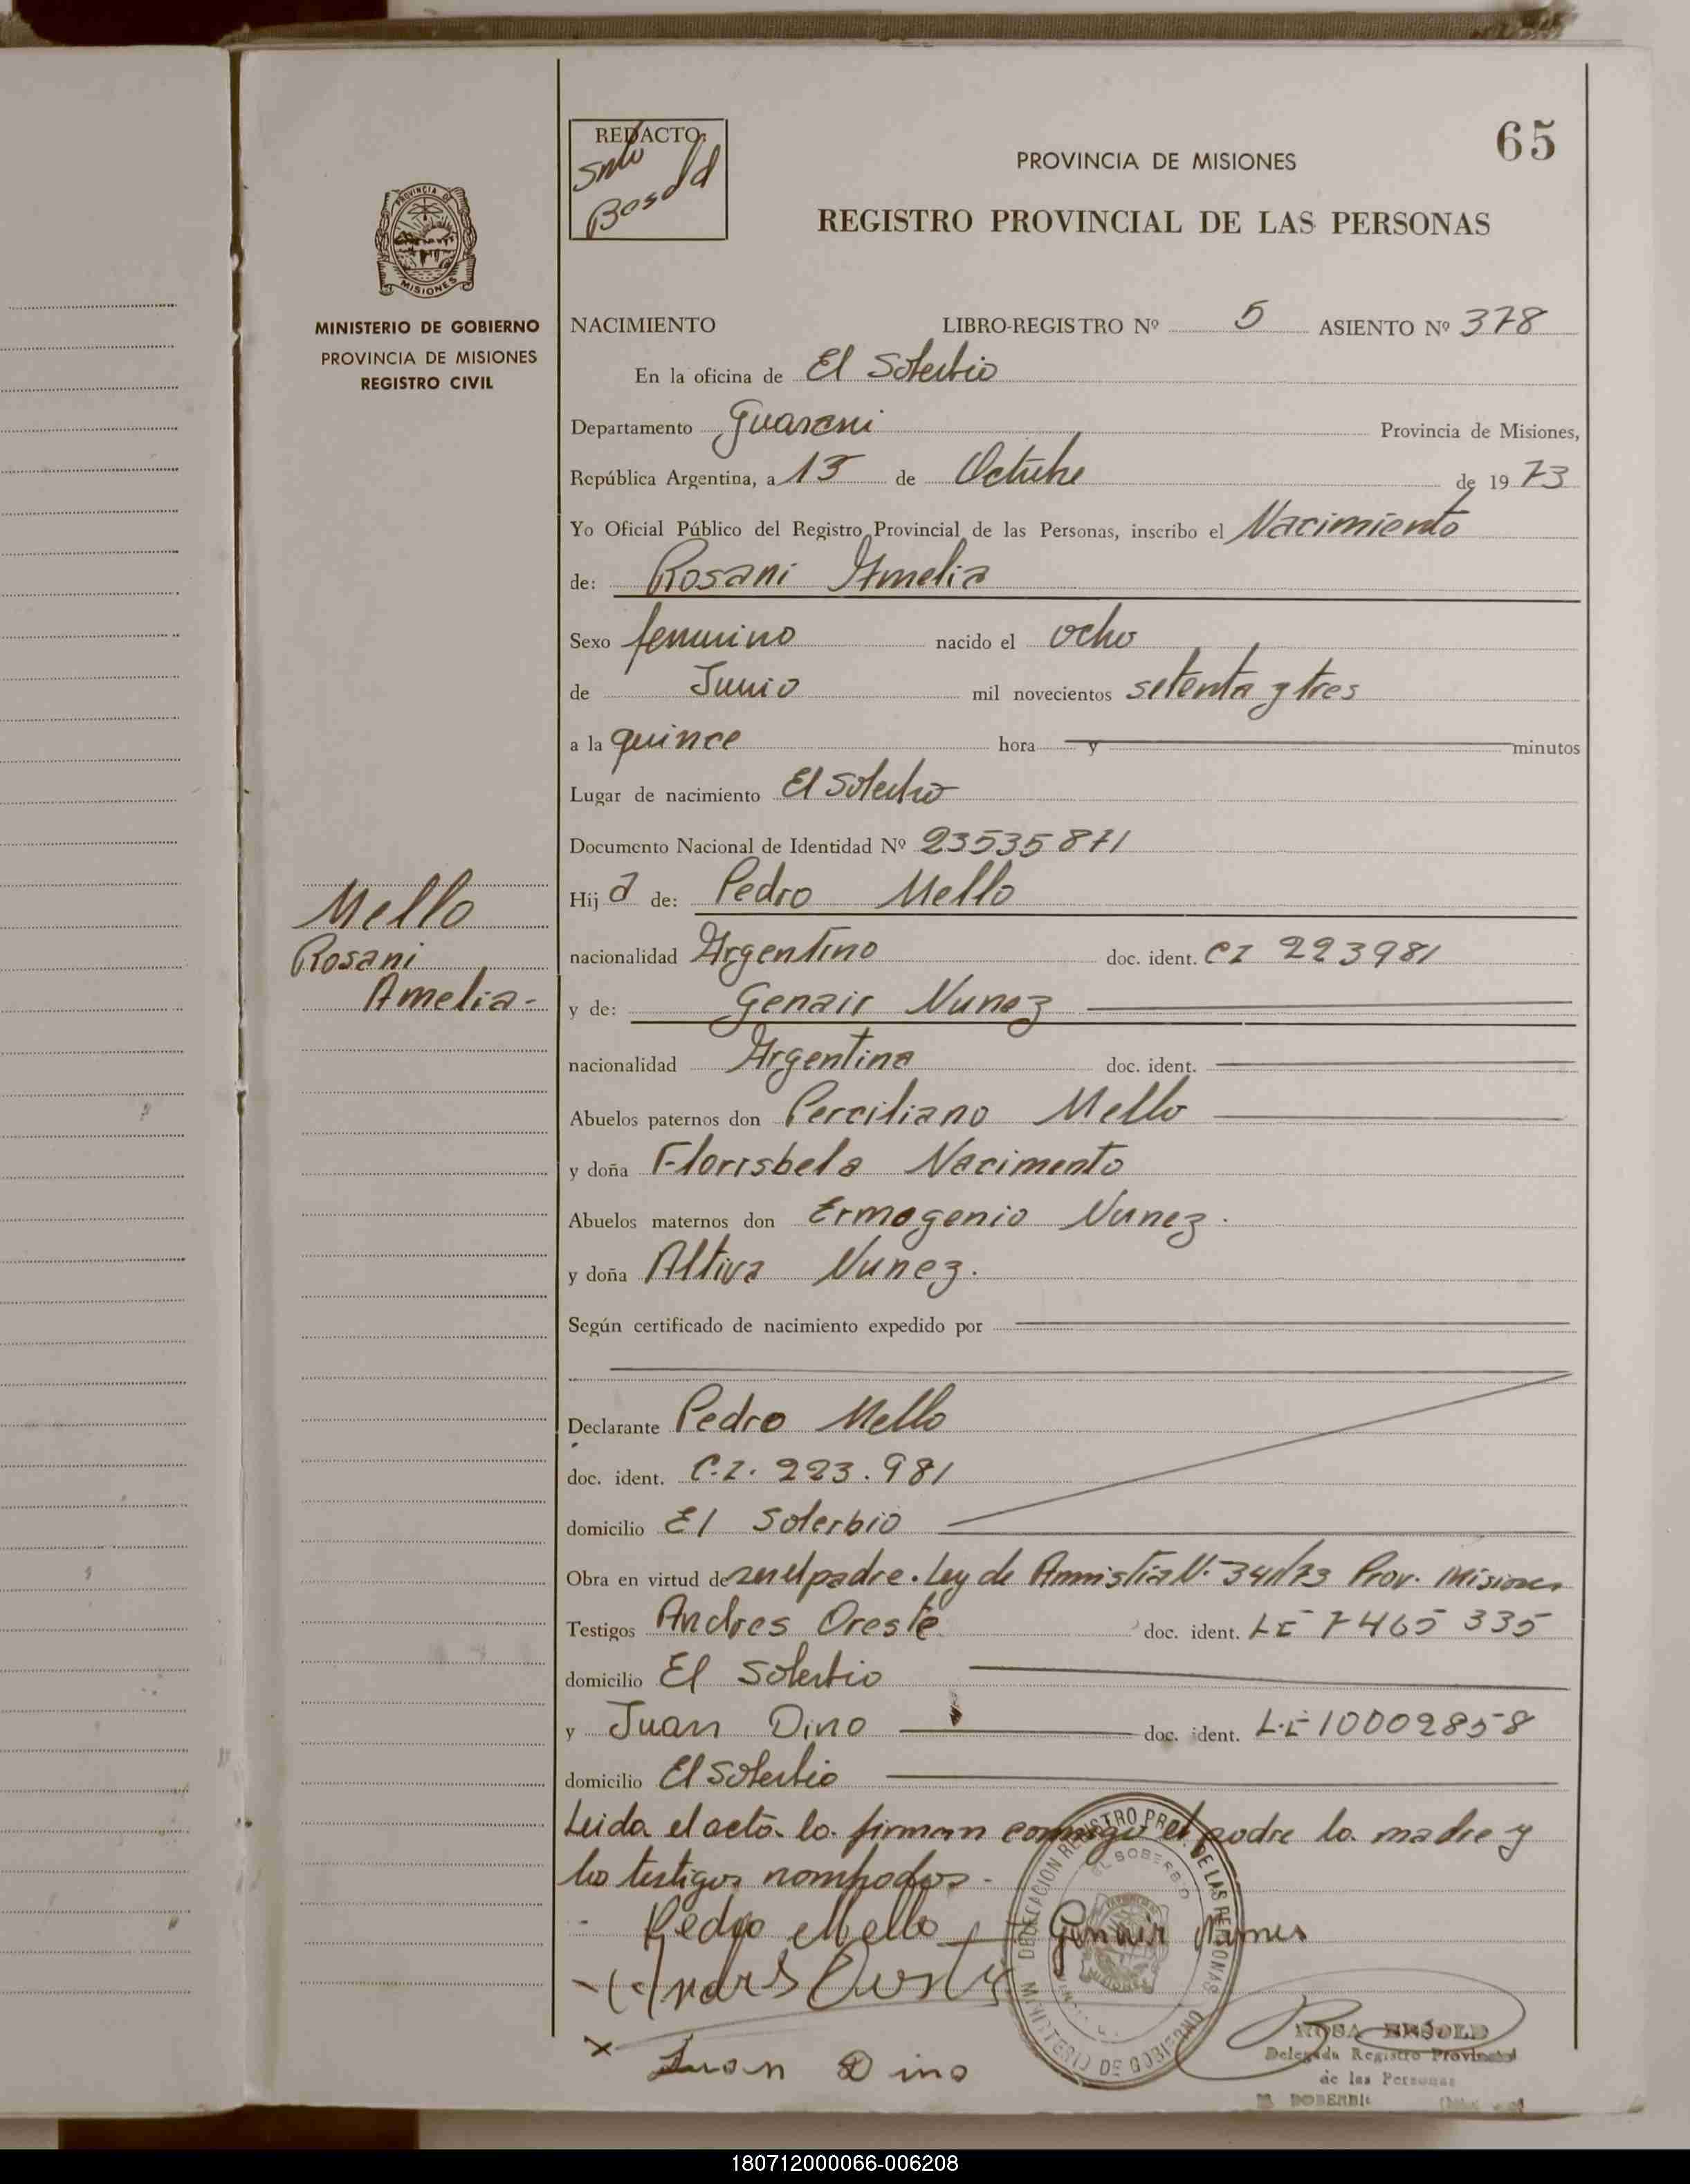 65
REDACTO:
PROVINCIA DE MISIONES
REGISTRO PROVINCIAL DE LAS PERSONAS
PROVINCIA DE
MISIONES
MINISTERIO DE GOBIERNO
PROVINCIA DE MISIONES
REGISTRO CIVIL
NACIMIENTO LIBRO-REGISTRO Nº 5 ASIENTO Nº 378
En la oficina de El Soberbio
Departamento Guarani Provincia de Misiones,
República Argentina, a 13 de Octubre de 1973
Yo Oficial Público del Registro Provincial de las Personas, inscribo el Nacimiento
de: Rosani Amelia
Sexo femenino nacido el ocho
de Junio mil novecientos setenta y tres
a la quince hora y minutos
Lugar de nacimiento El Soberbio
Documento Nacional de Identidad Nº 23535871
Hija de: Pedro Mello
Mello
Rosani
Amelia-
nacionalidad Argentino doc. ident. CI 223981
y de: Genair Nunez
nacionalidad Argentina doc. ident.
Abuelos paternos don Perciliano Mello
y doña Florisbela Nacimento
Abuelos maternos don Ermogenio Nunez.
y doña Altiva Nunez.
Según certificado de nacimiento expedido por
Declarante Pedro Mello
doc. ident. C.I. 223.981
domicilio El Soberbio
Obra en virtud de ser el padre. Ley de Amnistia N. 341/73 Prov. Misiones
Testigos Andres Oreste doc. ident. LE 7465 335
domicilio El Soberbio
y Juan Dino doc. ident. L.E 10002858
domicilio El Soberbio
Leida el acta la firman conmigo el padre la madre y
los testigos nombrados.-
Pedro Mello Genair Nunes
Juan Dino
DELEGACION REGISTRO PROV. DE LAS PERSONAS
EL SOBERBIO
MINISTERIO DE GOBIERNO
ROSA
Delegada Registro Provincial
de las Personas
SOBERBIO
180712000066-006208